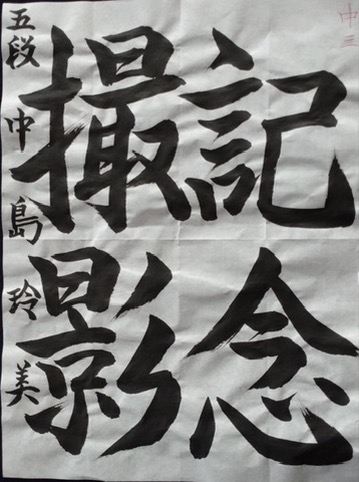 中三
記念
撮影
五段 中島玲美